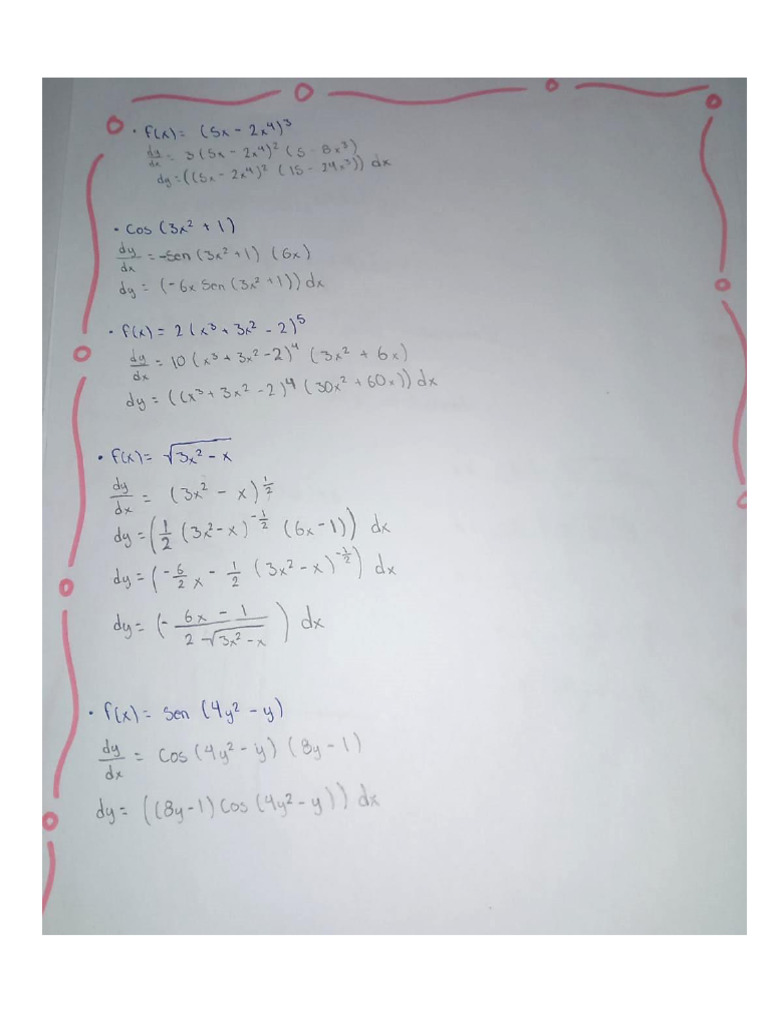 • f(x) = (5x - 2x⁴)³
dy/dx = 3(5x - 2x⁴)² (5 - 8x³)
dy = ((5x - 2x⁴)² (15 - 24x³)) dx
• Cos (3x² + 1)
dy/dx = -Sen (3x² + 1) (6x)
dy = (-6x Sen (3x² + 1)) dx
• f(x) = 2(x³ + 3x² - 2)⁵
dy/dx = 10 (x³ + 3x² - 2)⁴ (3x² + 6x)
dy = ((x³ + 3x² - 2)⁴ (30x² + 60x)) dx
• f(x) = √(3x² - x)
dy/dx = (3x² - x)^(1/2)
dy = (1/2 (3x² - x)^(-1/2) (6x - 1)) dx
dy = (-6/2 x - 1/2 (3x² - x)^(-1/2)) dx
dy = (- (6x - 1)/(2√(3x² - x))) dx
• f(x) = Sen (4y² - y)
dy/dx = Cos (4y² - y) (8y - 1)
dy = ((8y - 1) Cos (4y² - y)) dx